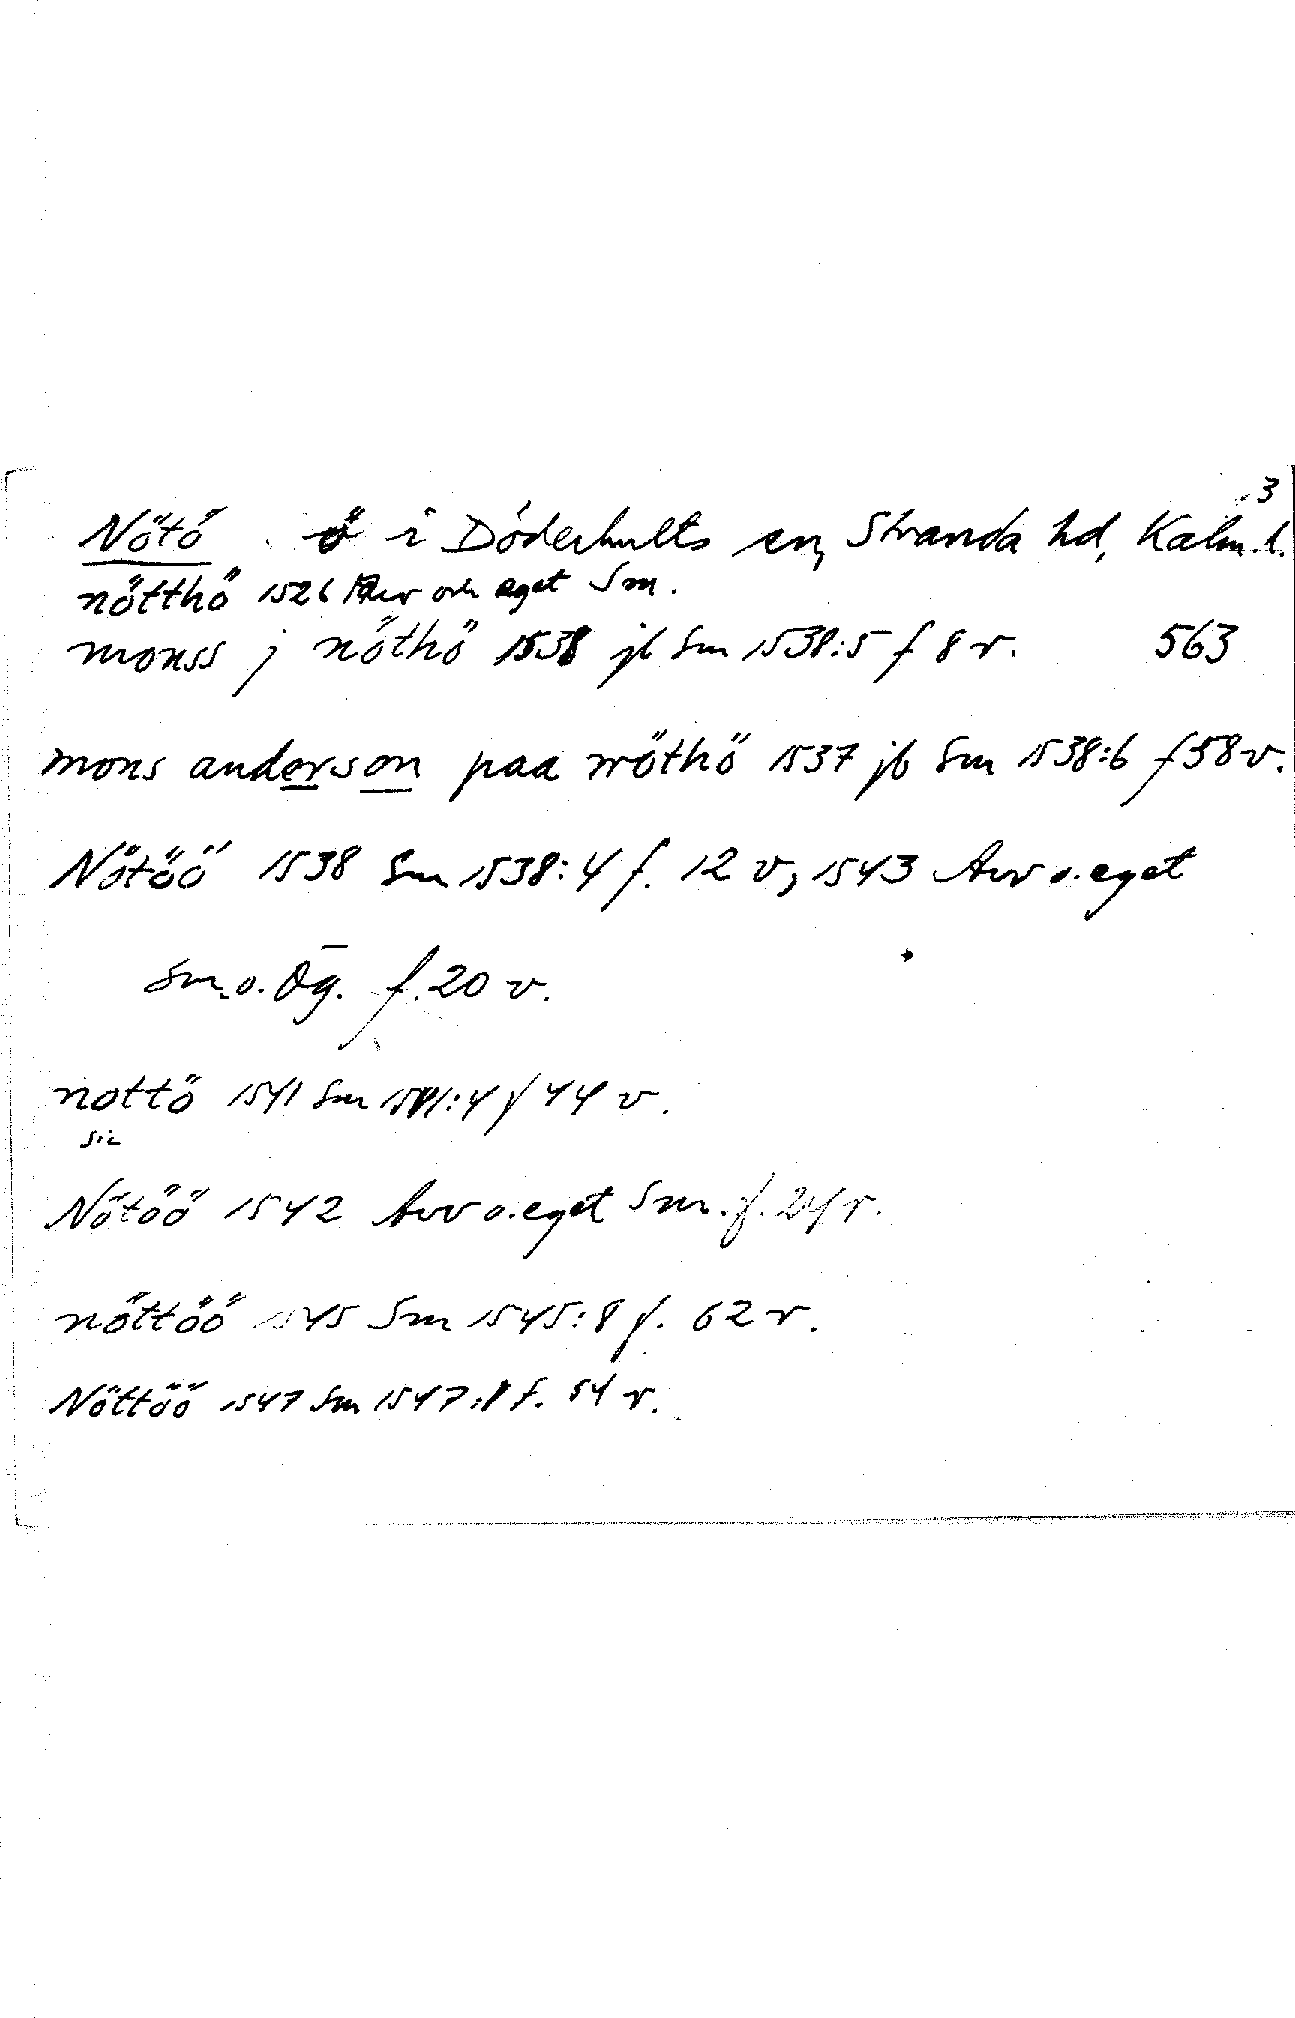 3
Nötö ö i Döderhults sn, Stranda hd, Kalm.l.
nötthö 1526 Arv och eget Sm.
monss j nöthö 1538 jb Sm 1538:5 f 8 r. 563
mons anderson paa nöthö 1537 jb Sm 1538:6 f 58 v.
Nötöö 1538 Sm 1538:4 f. 12 v, 1543 Arv o. eget
Sm. o. Ög. f. 20 v.
nottö 1541 Sm 1541:4 f 44 v.
sic
Nötöö 1542 Arv o. eget Sm. f. 24 r.
nöttöö 1545 Sm 1545:8 f. 62 r.
Nöttöö 1547 Sm 1547:8 f. 54 r.